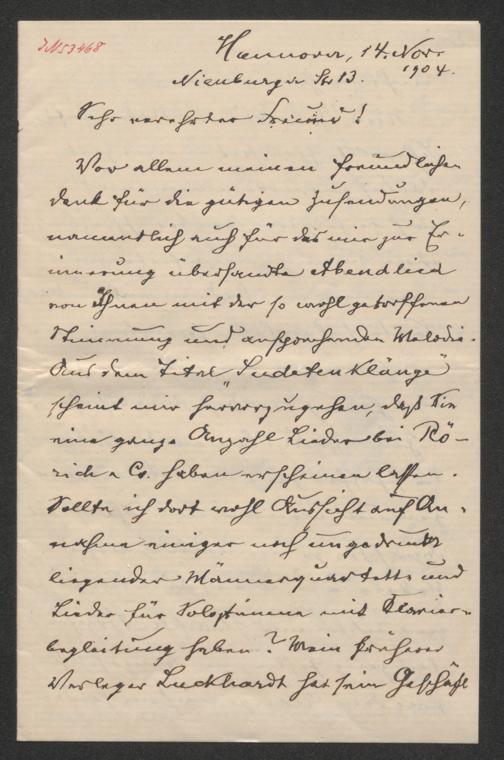 JN 53468
Hannover, 14. Nov.
1904.
Nienburger Str 13.
Sehr verehrter Freund!
Vor allem meinen freundlichen
Dank für die gütigen Zusendungen,
namentlich auch für das mir zur Er-
innerung übersandte Abendlied
von Ihnen mit der so wohl getroffenen
Stimmung und ansprechenden Melodie.
Aus dem Titel "Sudetenklänge"
scheint mir hervorzugehen, daß Sie
eine ganze Anzahl Lieder bei Rö-
rich & Co. haben erscheinen lassen.
Sollte ich dort wohl Aussicht auf An-
nahme einiger noch ungedruckt
liegender Männerquartette und
Lieder für Solostimme mit Klavier-
begleitung haben? Mein früherer
Verleger Luckhardt hat sein Geschäft